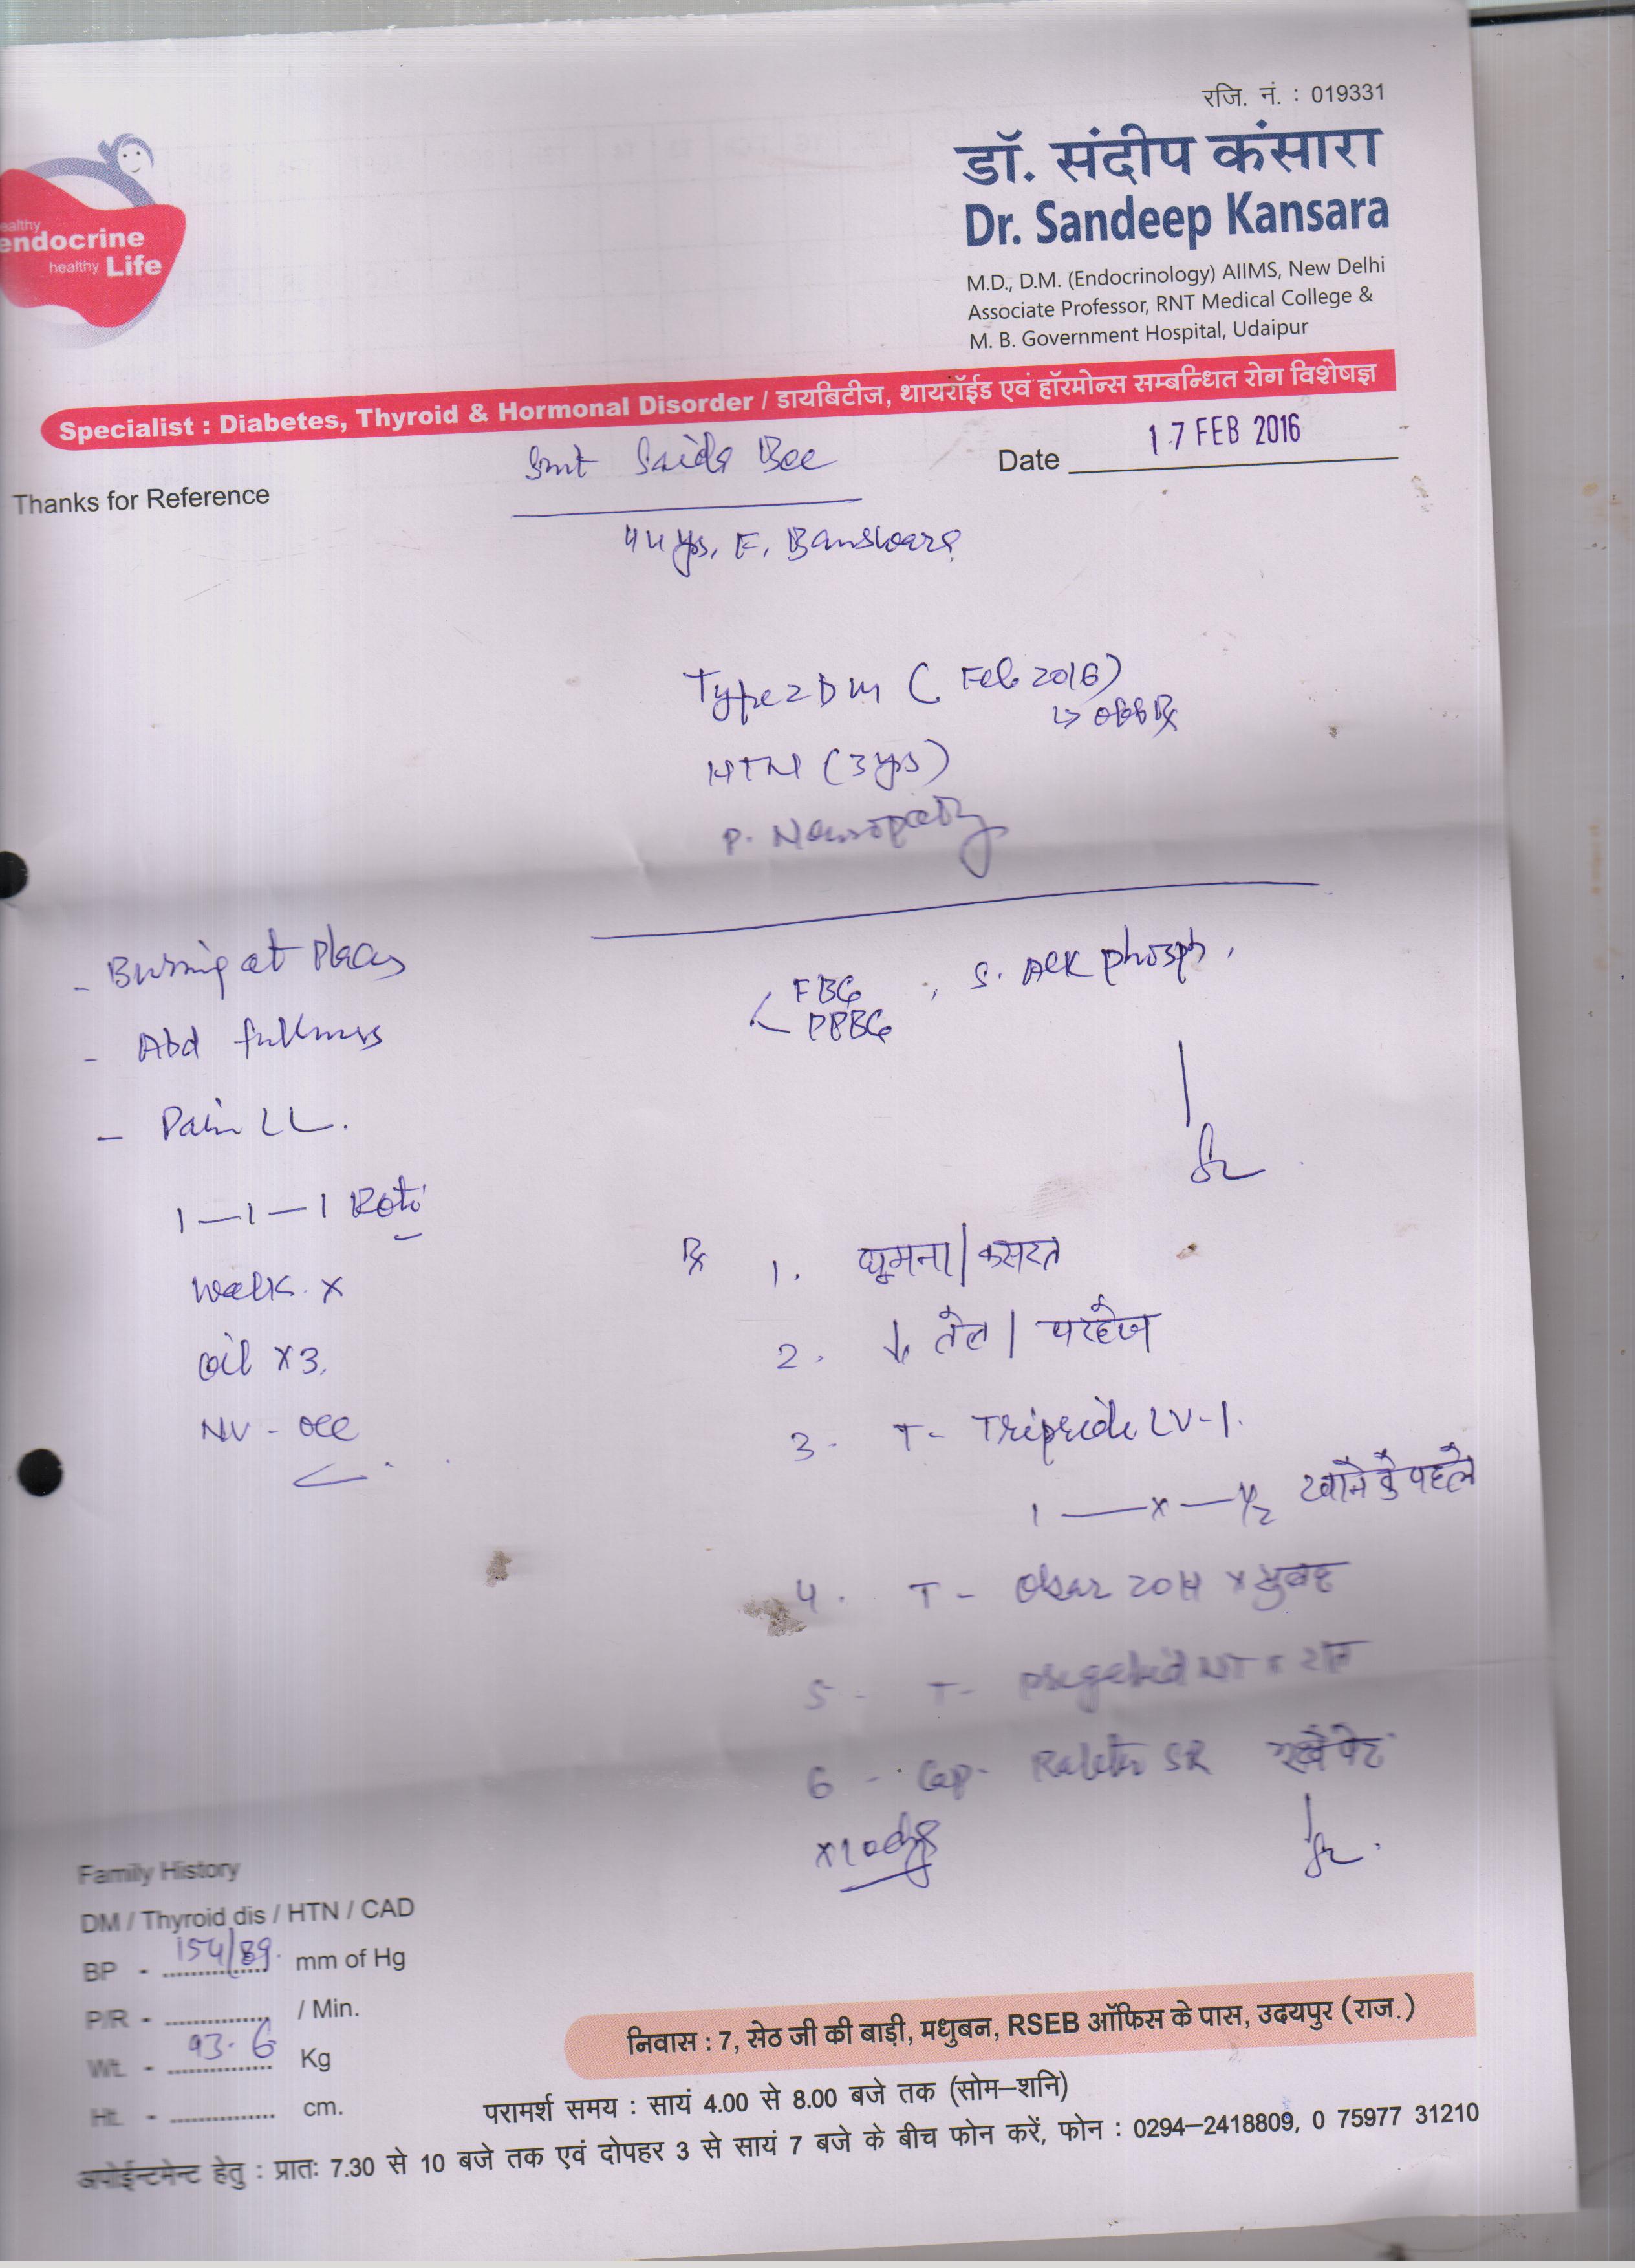 रजि. नं. : 019331
डॉ. संदीप कंसारा
Dr. Sandeep Kansara
M.D., D.M. (Endocrinology) AIIMS, New Delhi
Associate Professor, RNT Medical College &
M. B. Government Hospital, Udaipur
ealthy
endocrine
healthy Life
Specialist : Diabetes, Thyroid & Hormonal Disorder / डायबिटीज, थायरॉईड एवं हॉरमोन्स सम्बन्धित रोग विशेषज्ञ
Date 17 FEB 2016
Smt Saida Bee
Thanks for Reference
yrs, F, Banswara
Type 2 DM ( Feb 2016)
HTN (3 yrs)
P. Neuropathy
- Burning at Places
- Abd fullness
- Pain LL.
1 — 1 — 1 Roti
Walk. x
Oil x 3.
NV - occ
FBG , S. Alk phosph,
PPBG
Rx 1. घूमना / कसरत
2. ↓ तेल / परहेज
3 - T - Tripride LV-1.
1 — x — 1/2 खाने के पहले
4. T - Olsar 20H x सुबह
5 - T - Pregabid NT x रात
6 - Cap - SR
x 10 days
Family History
DM / Thyroid dis / HTN / CAD
BP - 154/89. mm of Hg
P/R - / Min.
Wt. - 93.6 Kg
Ht. - cm.
निवास : 7, सेठ जी की बाड़ी, मधुबन, RSEB ऑफिस के पास, उदयपुर (राज.)
परामर्श समय : सायं 4.00 से 8.00 बजे तक (सोम–शनि)
अपोईन्टमेन्ट हेतु : प्रातः 7.30 से 10 बजे तक एवं दोपहर 3 से सायं 7 बजे के बीच फोन करें, फोन : 0294–2418809, 0 75977 31210